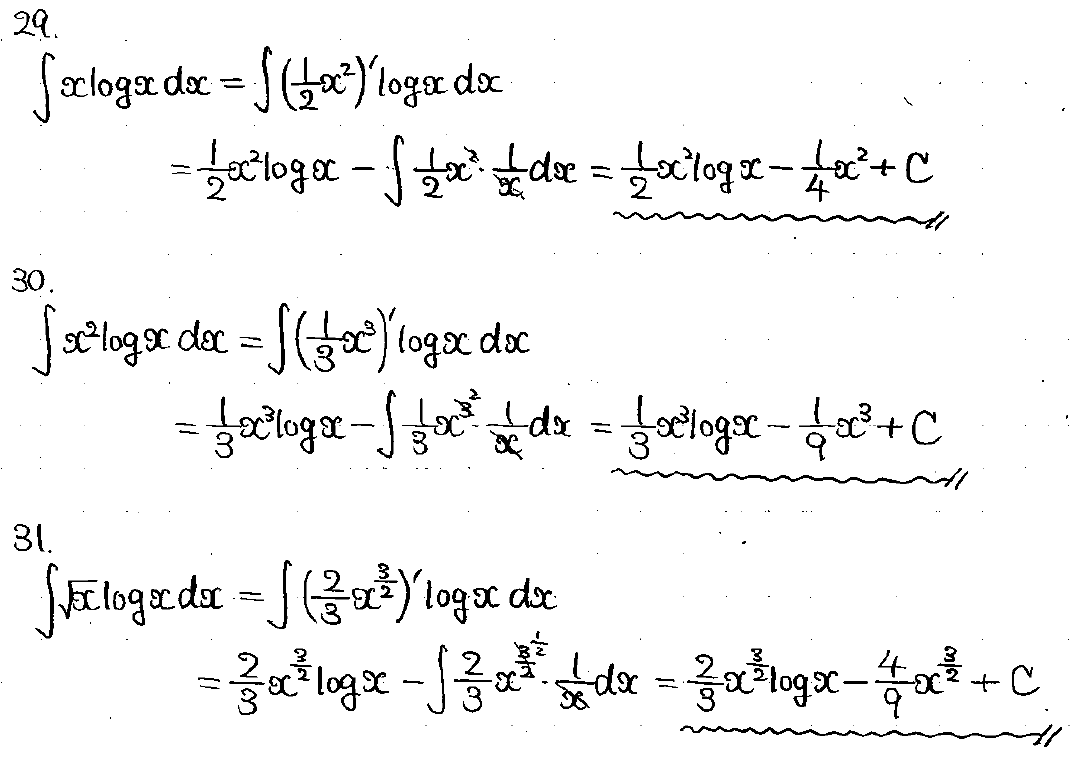 29.
∫x log x dx = ∫(1/2 x²)′ log x dx
= 1/2 x² log x − ∫ 1/2 x² · 1/x dx = 1/2 x² log x − 1/4 x² + C
30.
∫x² log x dx = ∫(1/3 x³)′ log x dx
= 1/3 x³ log x − ∫ 1/3 x³ ² · 1/x dx = 1/3 x³ log x − 1/9 x³ + C
31.
∫√x log x dx = ∫(2/3 x^(3/2))′ log x dx
= 2/3 x^(3/2) log x − ∫ 2/3 x^(3/2) ^(1/2) · 1/x dx = 2/3 x^(3/2) log x − 4/9 x^(3/2) + C